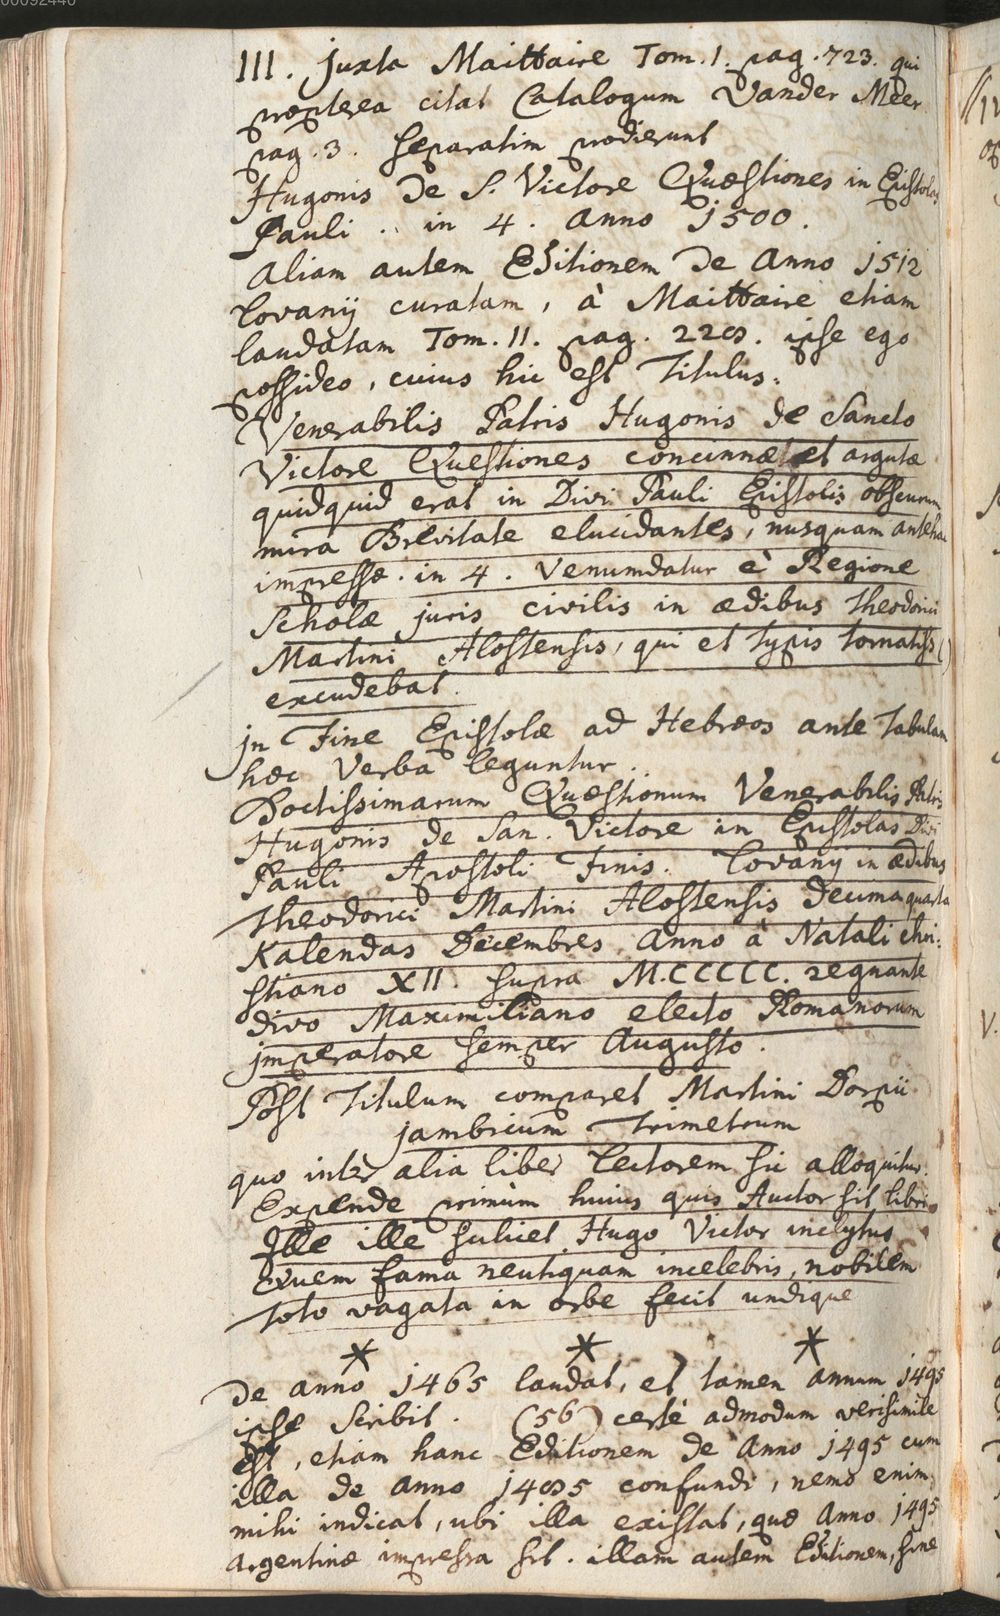 00092440
III. Juxta Maittaire Tom. I. pag. 723. qui
propterea citat Catalogum Vander Meer
pag. 3. separatim prodierunt
Hugonis de S. Victore Quæstiones in Epistolas
Pauli .. in 4. anno 1500.
aliam autem Editionem de Anno 1512
Lovanij curatam, à Maittaire etiam
laudatam Tom. II. pag. ipse ego
possideo, cuius hic est Titulus.
Venerabilis Patris Hugonis de Sancto
Victore Quæstiones concinnæ et argutæ
quidquid erat in Divi Pauli Epistolis obscurum
mira Brevitate elucidantes, nusquam antehac
impressæ. in 4. Venumdatur è Regione
Scholæ juris civilis in ædibus Theodorici
Martini Alostensis, qui et typis tornatiss()
excudebat.
jn Fine Epistolæ ad Hebræos ante Tabulam
hæc Verba leguntur.
Doctissimarum Quæstionum Venerabilis Patris
Hugonis de San. Victore in Epistolas Divi
Pauli Apostoli Finis. Lovanij in ædibus
Theodorici Martini Alostensis Decimaquarta
Kalendas Decembres Anno à Natali chri:
stiano XII. supra M.CCCCC. regnante
divo Maximiliano electo Romanorum
jmperatore semper Augusto.
Post Titulum comparet Martini Dorpii
jambricum Trimetrum
quo inter alia liber Lectorem sic alloquitur.
Expende primùm huius quis Auctor sit libri
Ille ille scilicet Hugo Victor inclytus
Quem fama neutiquam incelebris, nobilem
toto vagata in orbe fecit undique
* * *
de anno 1465 laudat, et tamen annum 1495
ipse scribit. (56) certè admodum verisimile
est, etiam hanc Editionem de Anno 1495 cum
illa de anno confundi, nemo enim
mihi indicat, ubi illa existat, quæ Anno 1495
Argentinæ impressa sit. illam autem Editionem, sine